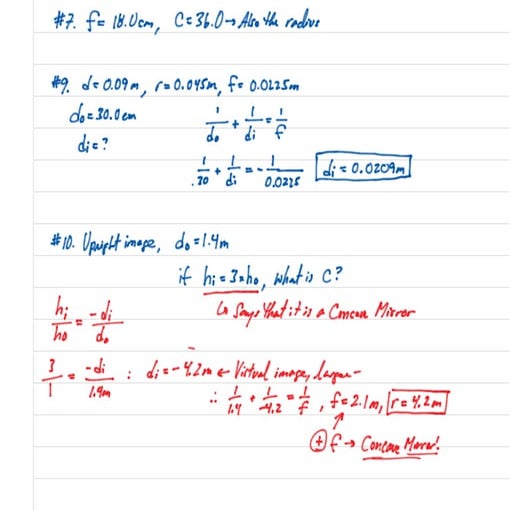 #7. f = 18.0cm, C = 36.0 → Also the radius
#9. d = 0.09m, r = 0.045m, f = 0.0225m
do = 30.0cm
1/do + 1/di = 1/f
di = ?
1/.30 + 1/di = -1/0.0225
di = 0.0209m
#10. Upright image, do = 1.4m
if hi = 3×ho, what is C?
↳ Says that it is a Concave Mirror
hi/ho = -di/do
3/1 = -di/1.4m : di = -4.2m ← Virtual image, larger
∴ 1/1.4 + 1/-4.2 = 1/f, f = 2.1m, r = 4.2m
⊕ f → Concave Mirror!